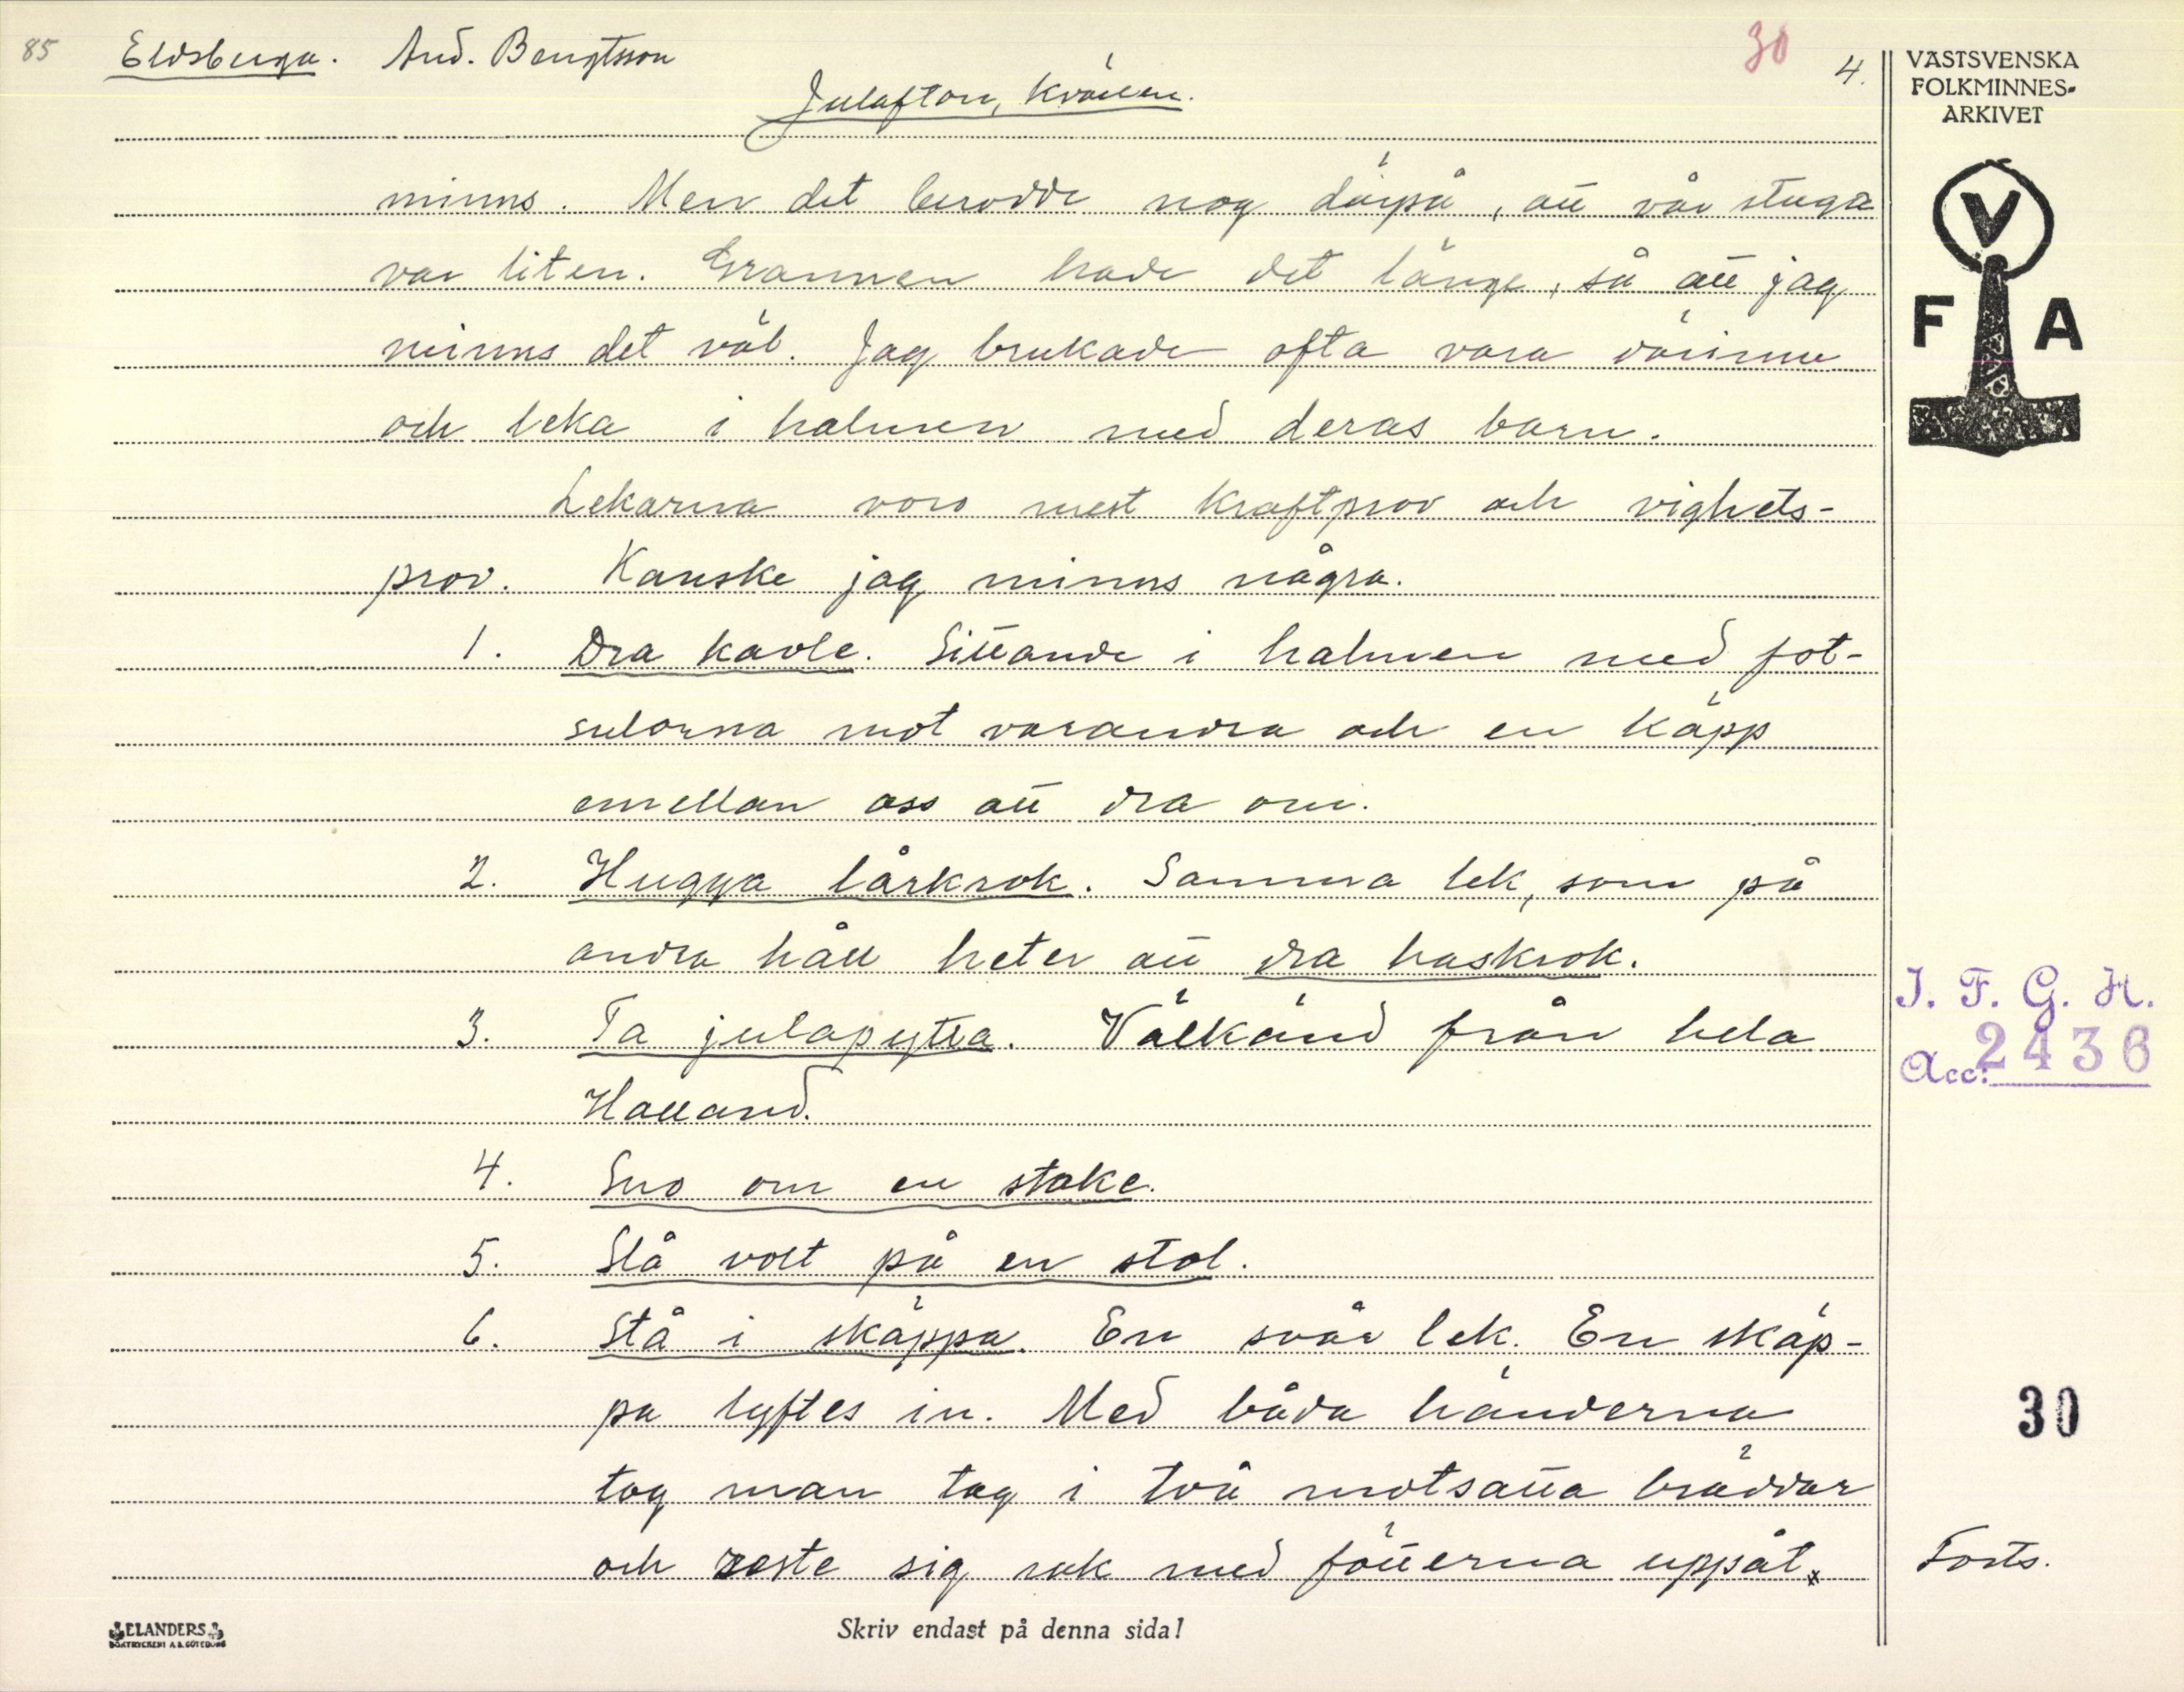 85 Eldsberga. And. Bengtsson 30 4.
Julafton, kvällen.
minns. Men det berodde nog därpå, att vår stuga
var liten. Grannen hade det länge, så att jag
minns det väl. Jag brukade ofta vara därinne
och leka i halmen med deras barn.
Lekarna voro mest kraftprov och vighets-
prov. Kanske jag minns några.
1. Dra kavle. Sittande i halmen med fot-
sulorna mot varandra och en käpp
emellan oss att dra om.
2. Hugga lårkrok. Samma lek, som på
andra håll heter att dra haskrok.
3. Ta julapytta. Välkänd från hela
Halland.
4. Sno om en stake.
5. Slå volt på en stol.
6. Stå i skäppa. En svår lek. En skäp-
pa lyftes in. Med båda händerna
tog man tag i två motsatta bräddar
och reste sig rak med fötterna uppåt.
VÄSTSVENSKA
FOLKMINNES-
ARKIVET
V
F A
I. F. G. H.
Acc: 2436
30
Forts.
ELANDERS
BOKTRYCKERI A.B. GÖTEBORG
Skriv endast på denna sida!